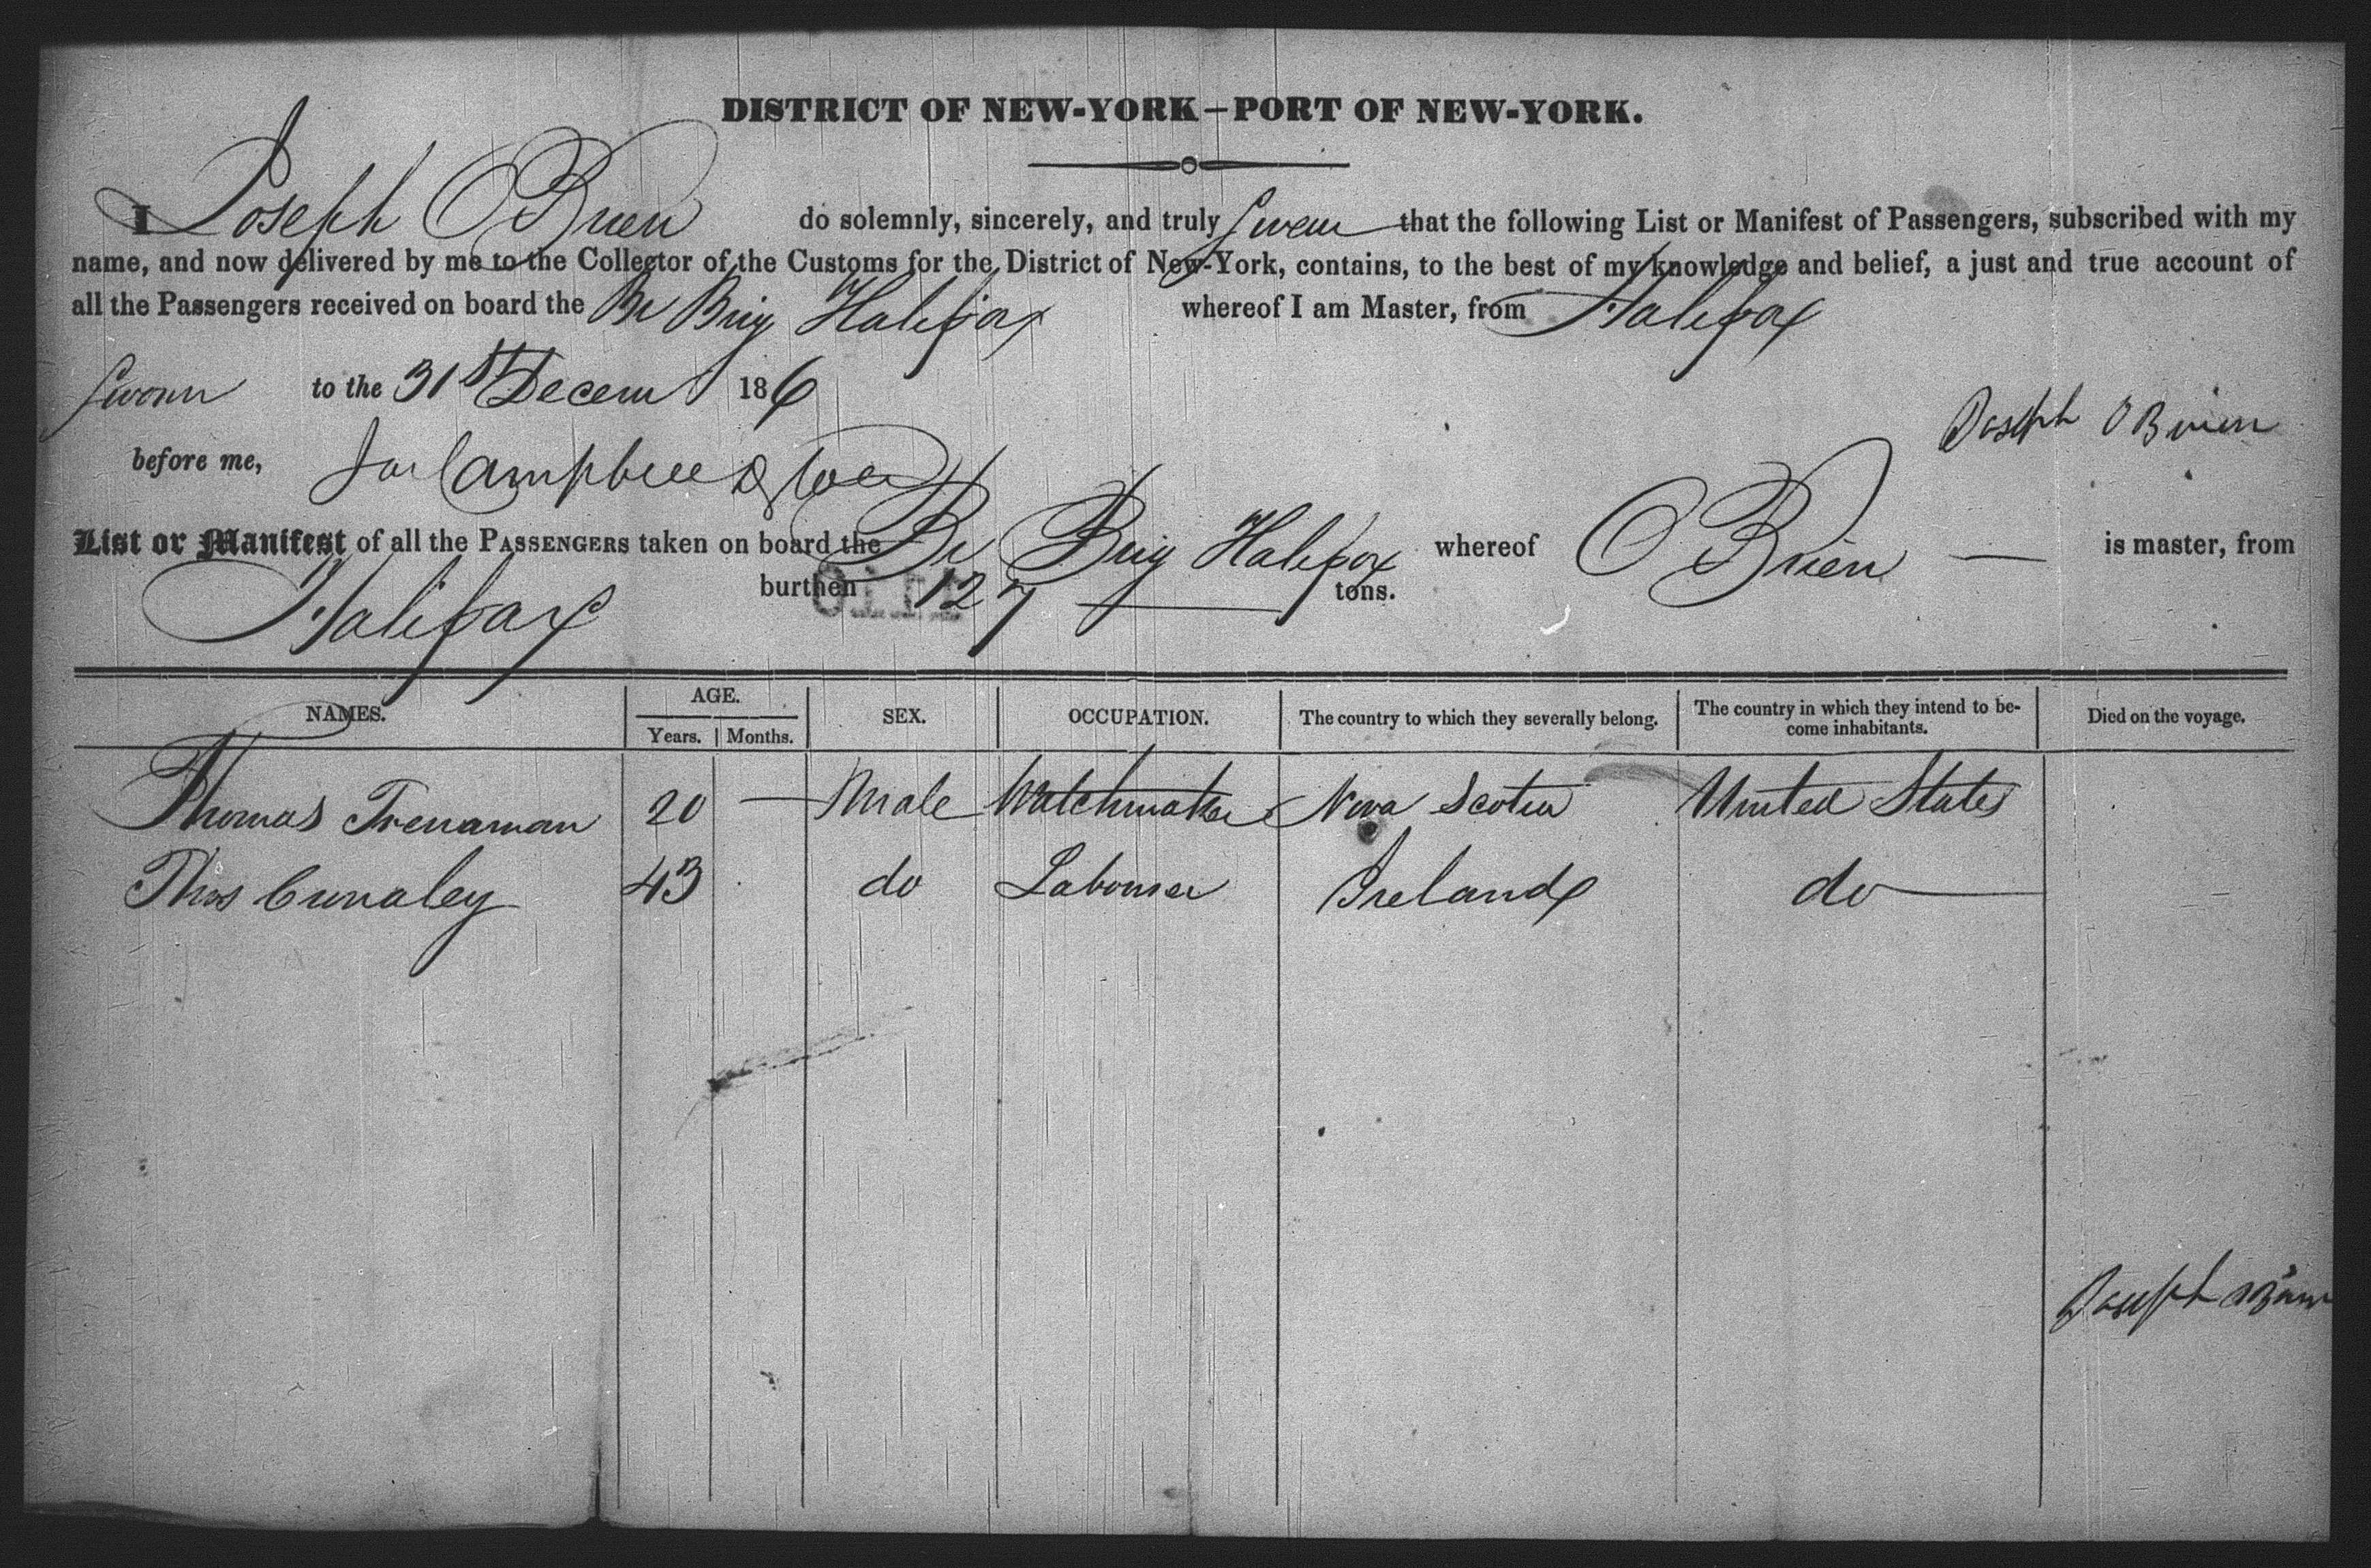 DISTRICT OF NEW-YORK—PORT OF NEW-YORK.
I Joseph O Brien do solemnly, sincerely, and truly Swear that the following List or Manifest of Passengers, subscribed with my
name, and now delivered by me to the Collector of the Customs for the District of New-York, contains, to the best of my knowledge and belief, a just and true account of
all the Passengers received on board the Br Brig Halifax whereof I am Master, from Halifax
Sworn to the 31st Decem 186
Joseph O Brien
before me, Campbell
List or Manifest of all the PASSENGERS taken on board the Br Brig Halifax whereof O Brien — is master, from
Halifax burthen 127 — tons.
NAMES. AGE. Years. Months. SEX. OCCUPATION. The country to which they severally belong. The country in which they intend to become inhabitants. Died on the voyage.
Thomas Trenaman 20 — Male Watchmaker Nova Scotia United States
Thos 43 do Labourer Ireland do —
Joseph OBrien